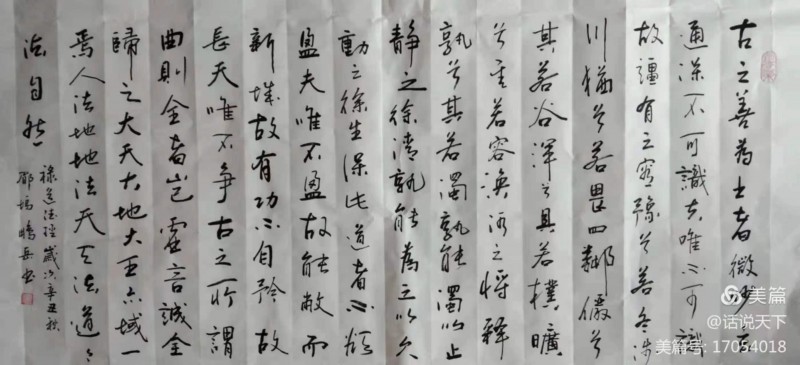 古之善為士者微妙玄
通深不可識夫唯不可識
故彊為之容豫兮若冬涉
川猶兮若畏四鄰儼兮
其若谷渾兮其若樸曠
兮其若容渙之將釋
兮其若濁孰能濁以止
靜之徐清孰能為之以久
動之徐生保此道者不欲
盈夫唯不盈故能敝而
新成故有功不自矜故
長夫唯不爭古之所謂
曲則全者豈虛言誠全
歸之大天大地大王亦域一
焉人法地地法天天法道〻
法自然
道德經歲次辛丑秋
美篇
@话说天下
美篇号: 17054018